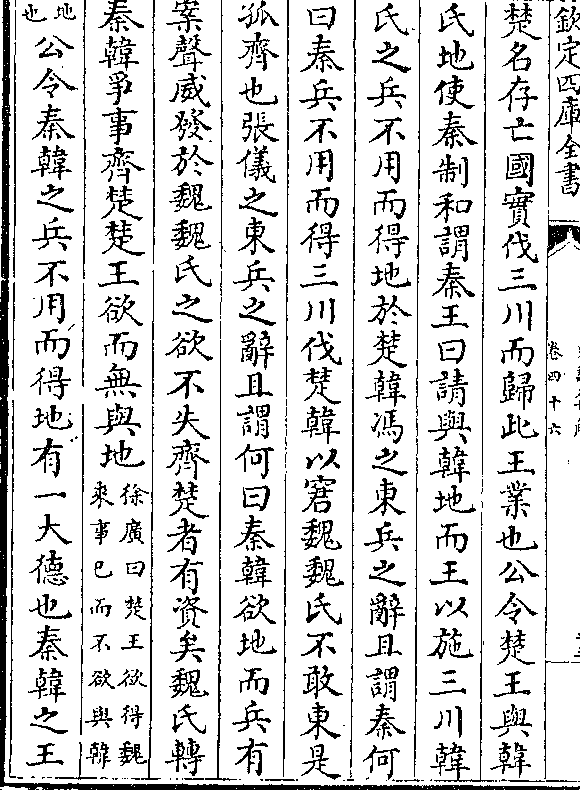 欽定四庫全書
卷四十六
楚名存亡國實伐三川而歸此王業也公令楚王與韓
氏地使秦制和謂秦王曰請與韓地而王以施三川韓
氏之兵不用而得地於楚韓馮之東兵之辭且謂秦何
曰秦兵不用而得三川伐楚韓以窘魏魏氏不敢東是
孤齊也張儀之東兵之辭且謂何曰秦韓欲地而兵有
案聲威發於魏魏氏之欲不失齊楚者有資矣魏氏轉
秦韓爭事齊楚楚王欲而無與地徐廣曰楚王欲得魏
來事已而不欲與韓
地
也公令秦韓之兵不用而得地有一大德也秦韓之王